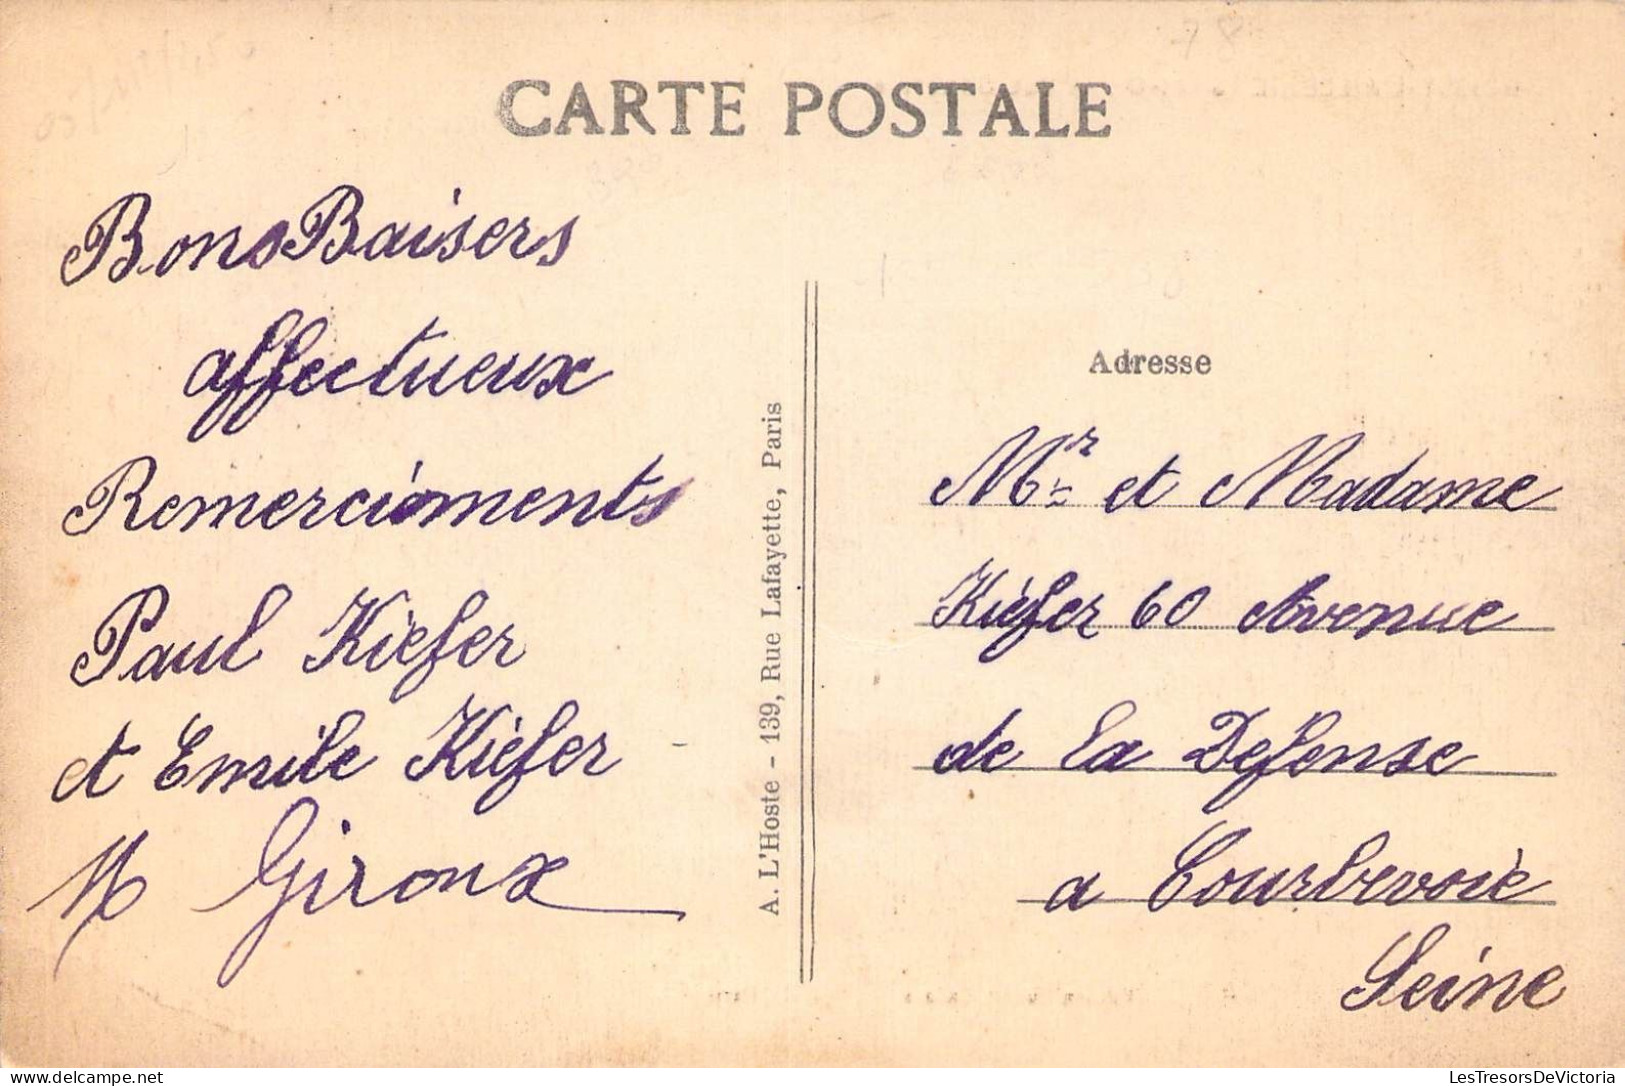 CARTE POSTALE
Bons Baisers
affectueux
Remerciements
Paul Kiefer
et Emile Kiefer
M Giroux
A. L'Hoste - 139, Rue Lafayette, Paris
Adresse
Mr et Madame
Kiefer 60 Avenue
de La Défense
a Courbevoie
Seine
LesTresorsDeVictoria